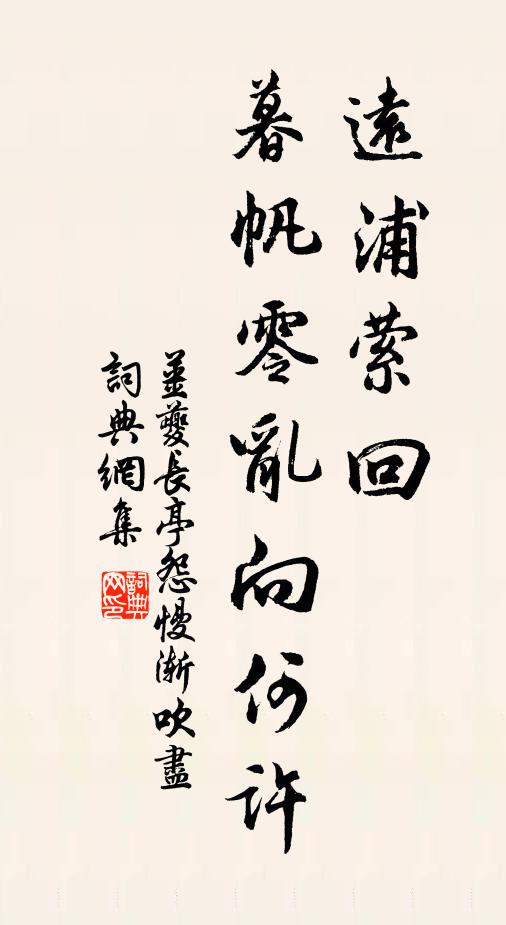 遠浦縈回
暮帆零亂向何許
姜夔長亭怨慢漸吹盡
詞典網集
詞典网印